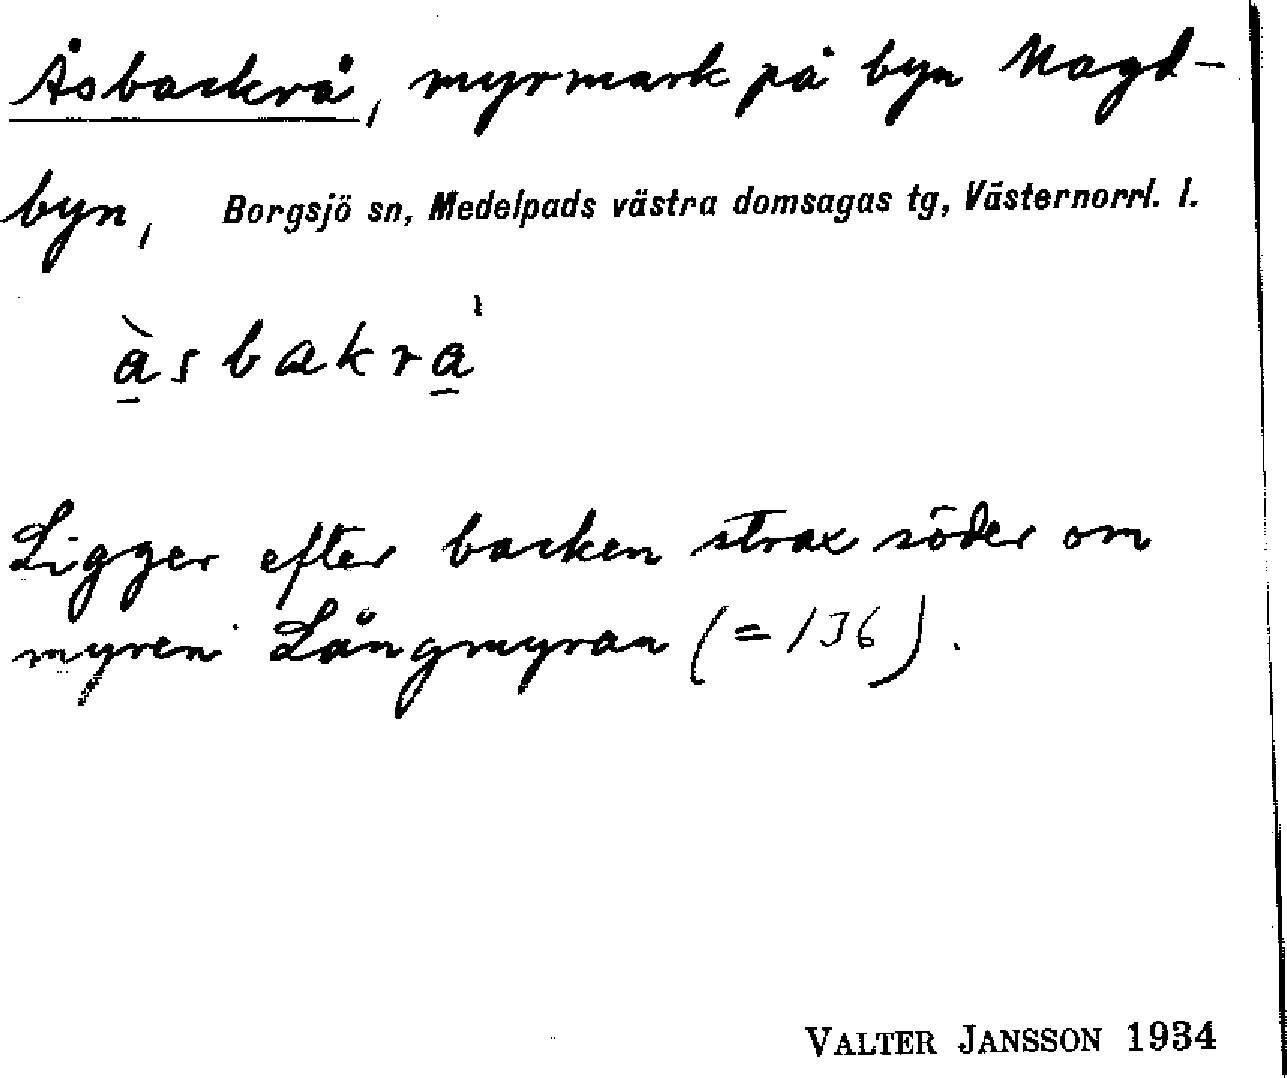 Åsbackrå, myrmark på byn Nagd-
byn, Borgsjö sn, Medelpads västra domsagas tg, Västernorrl. l.
à̱sbakra̱ˈ
Ligger efter backen strax söder om
myren Långmyran (=136).
VALTER JANSSON 1934